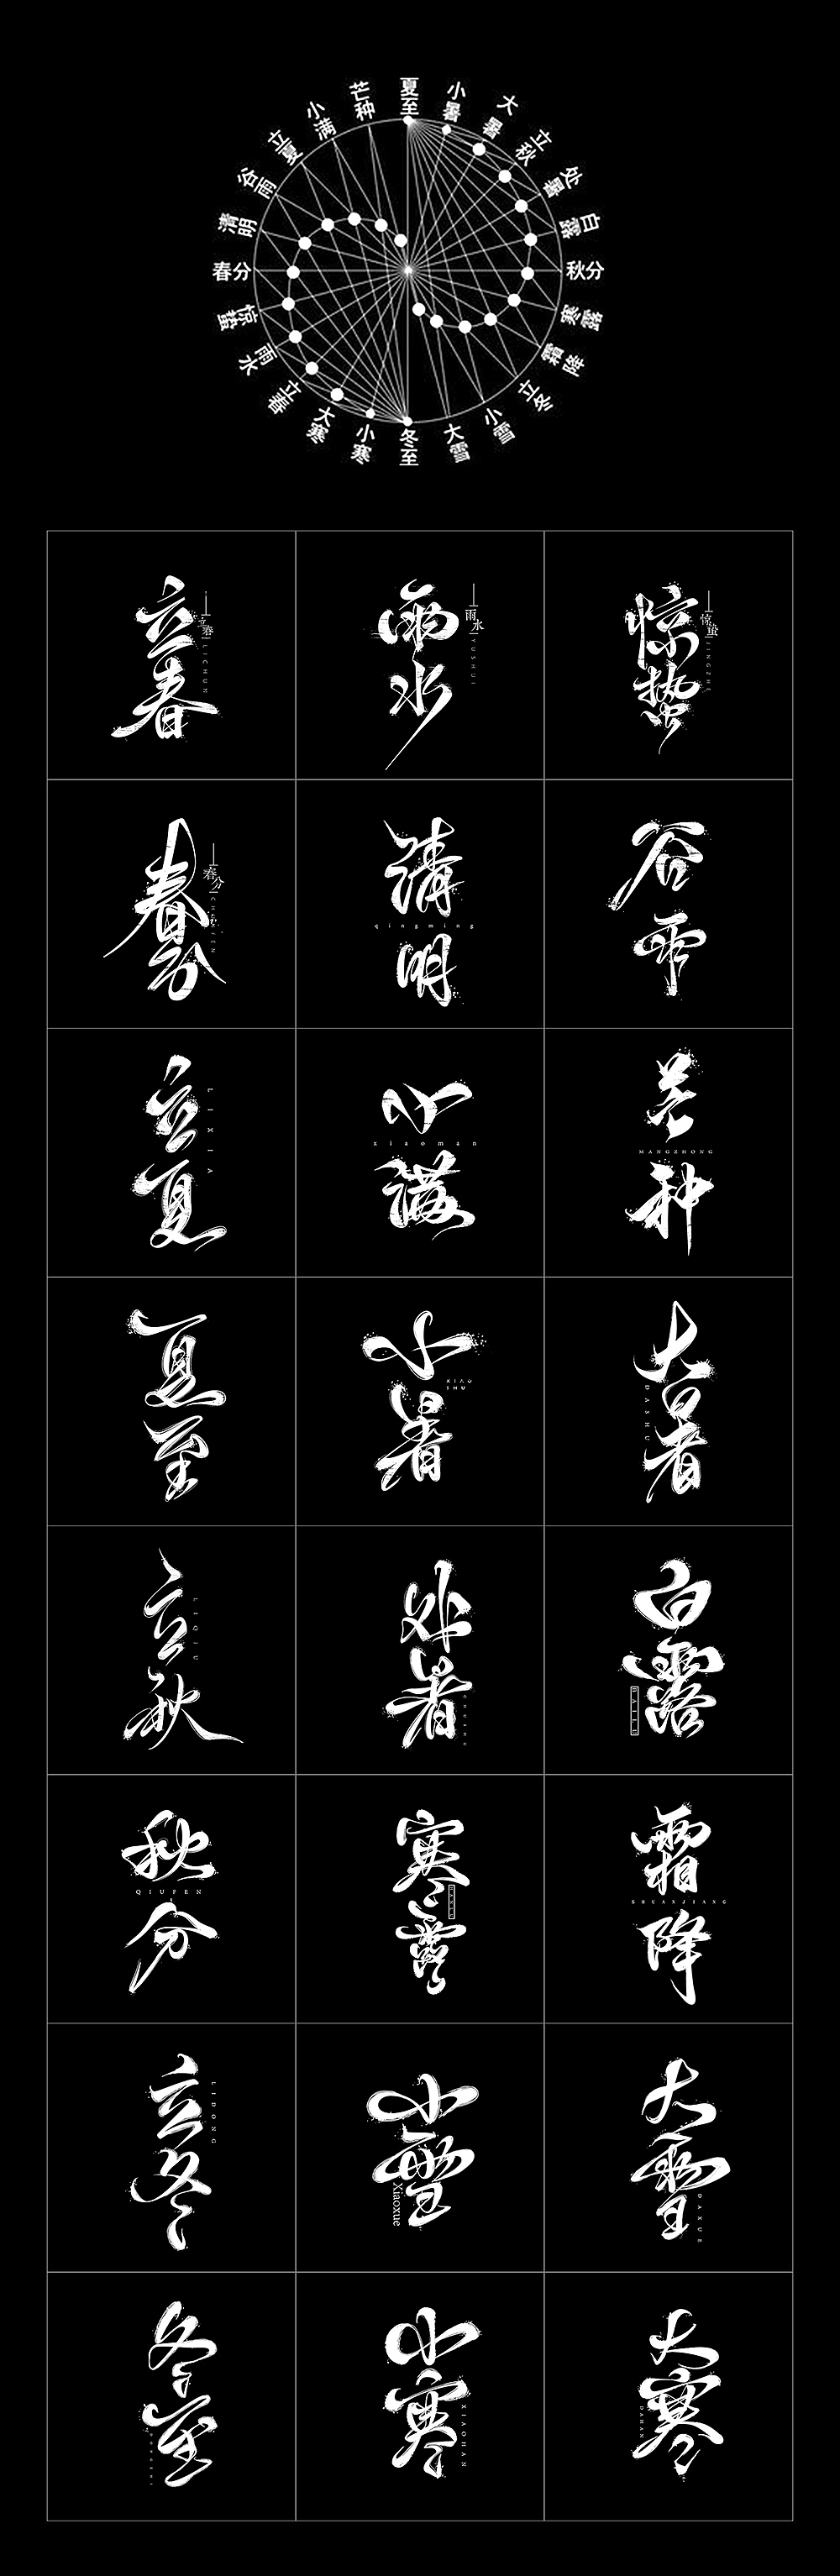 夏至
小暑
大暑
立秋
处暑
白露
秋分
寒露
霜降
立冬
小雪
大雪
冬至
小寒
大寒
立春
雨水
惊蛰
春分
清明
谷雨
立夏
小满
芒种
立春
立春
LICHUN
雨水
雨水
YUSHUI
惊蛰
惊蛰
JINGZHE
春分
春分
CHUNFEN
清明
qingming
谷雨
立夏
LIXIA
小满
xiaoman
芒种
MANGZHONG
夏至
小暑
XIAO
SHU
大暑
DASHU
立秋
LIQIU
处暑
CHUSHU
白露
BAILU
秋分
QIUFEN
寒露
霜降
SHUANJIANG
立冬
LIDONG
小雪
Xiaoxue
大雪
DAXUE
冬至
DONGZHI
小寒
XIAOHAN
大寒
DAHAN